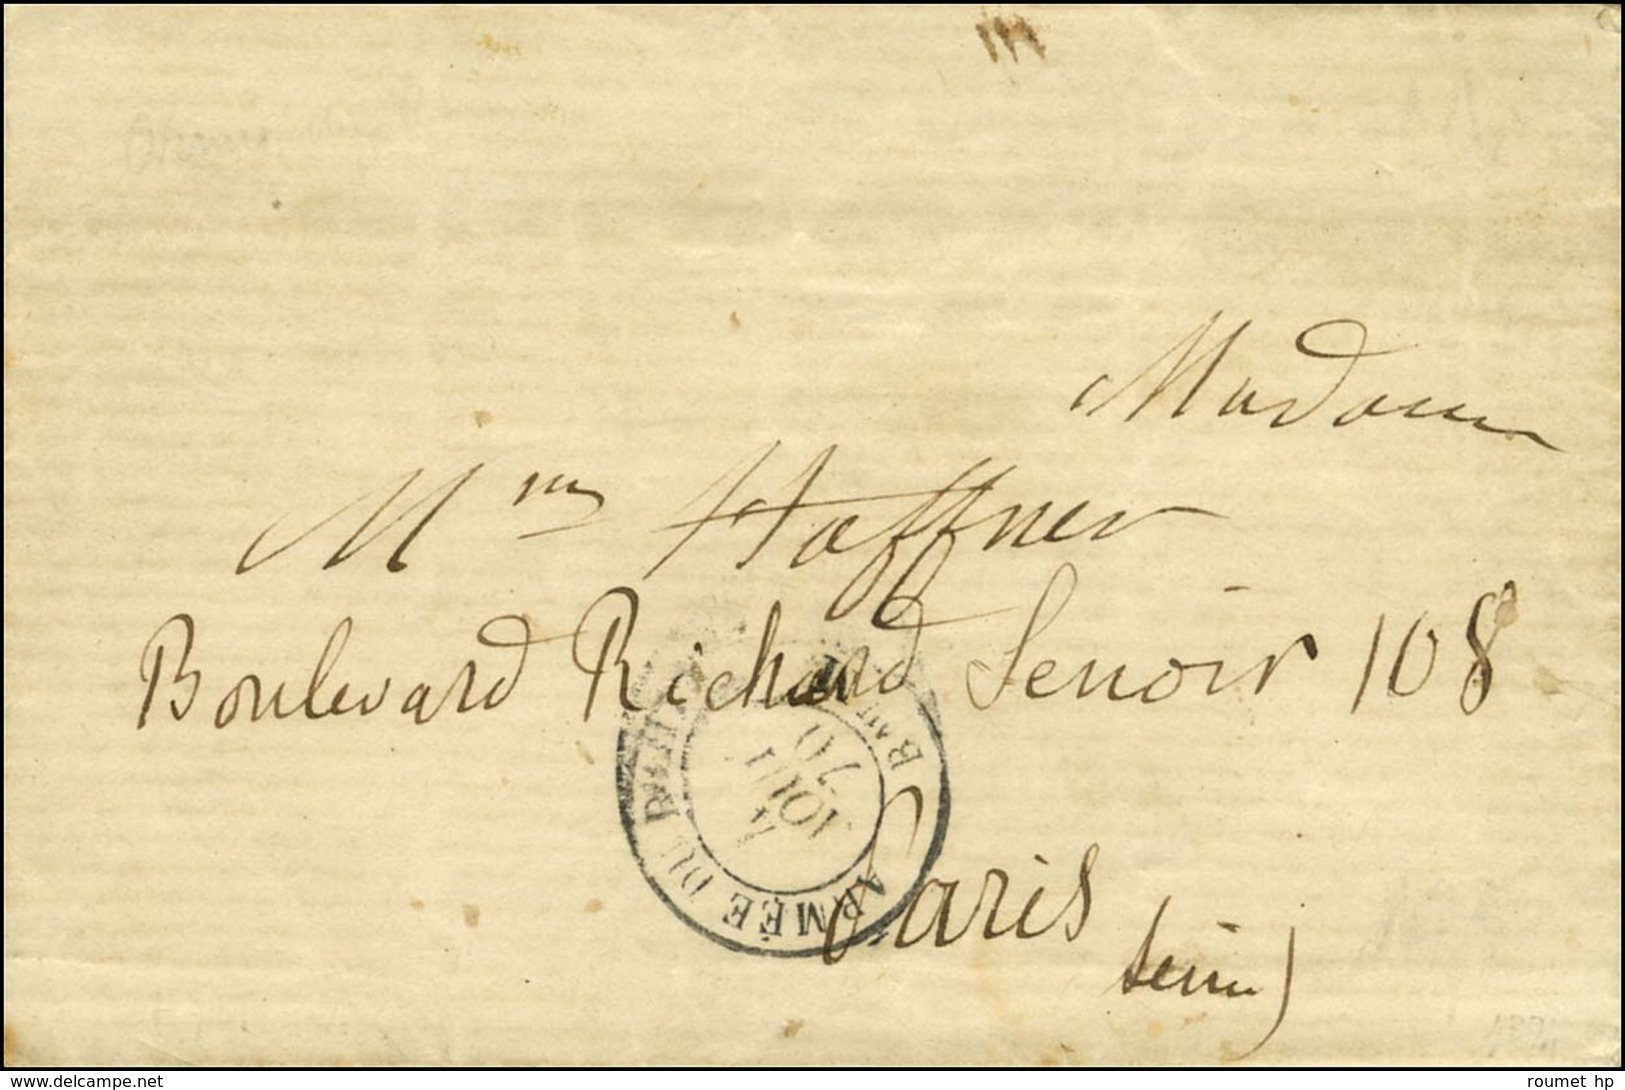 Madame
Mme Haffner
Boulevard Richard Lenoir 108
Paris
Seine)
ARMÉE DU RHIN
Bau
4
AOUT
70
roumet hp